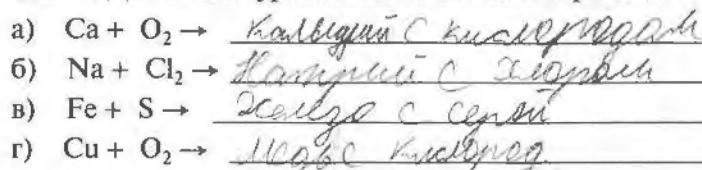 а) Ca + O₂ → Кальций с кислородом
б) Na + Cl₂ → Натрий с хлором
в) Fe + S → Железо с серой
г) Cu + O₂ → Медь с кислород